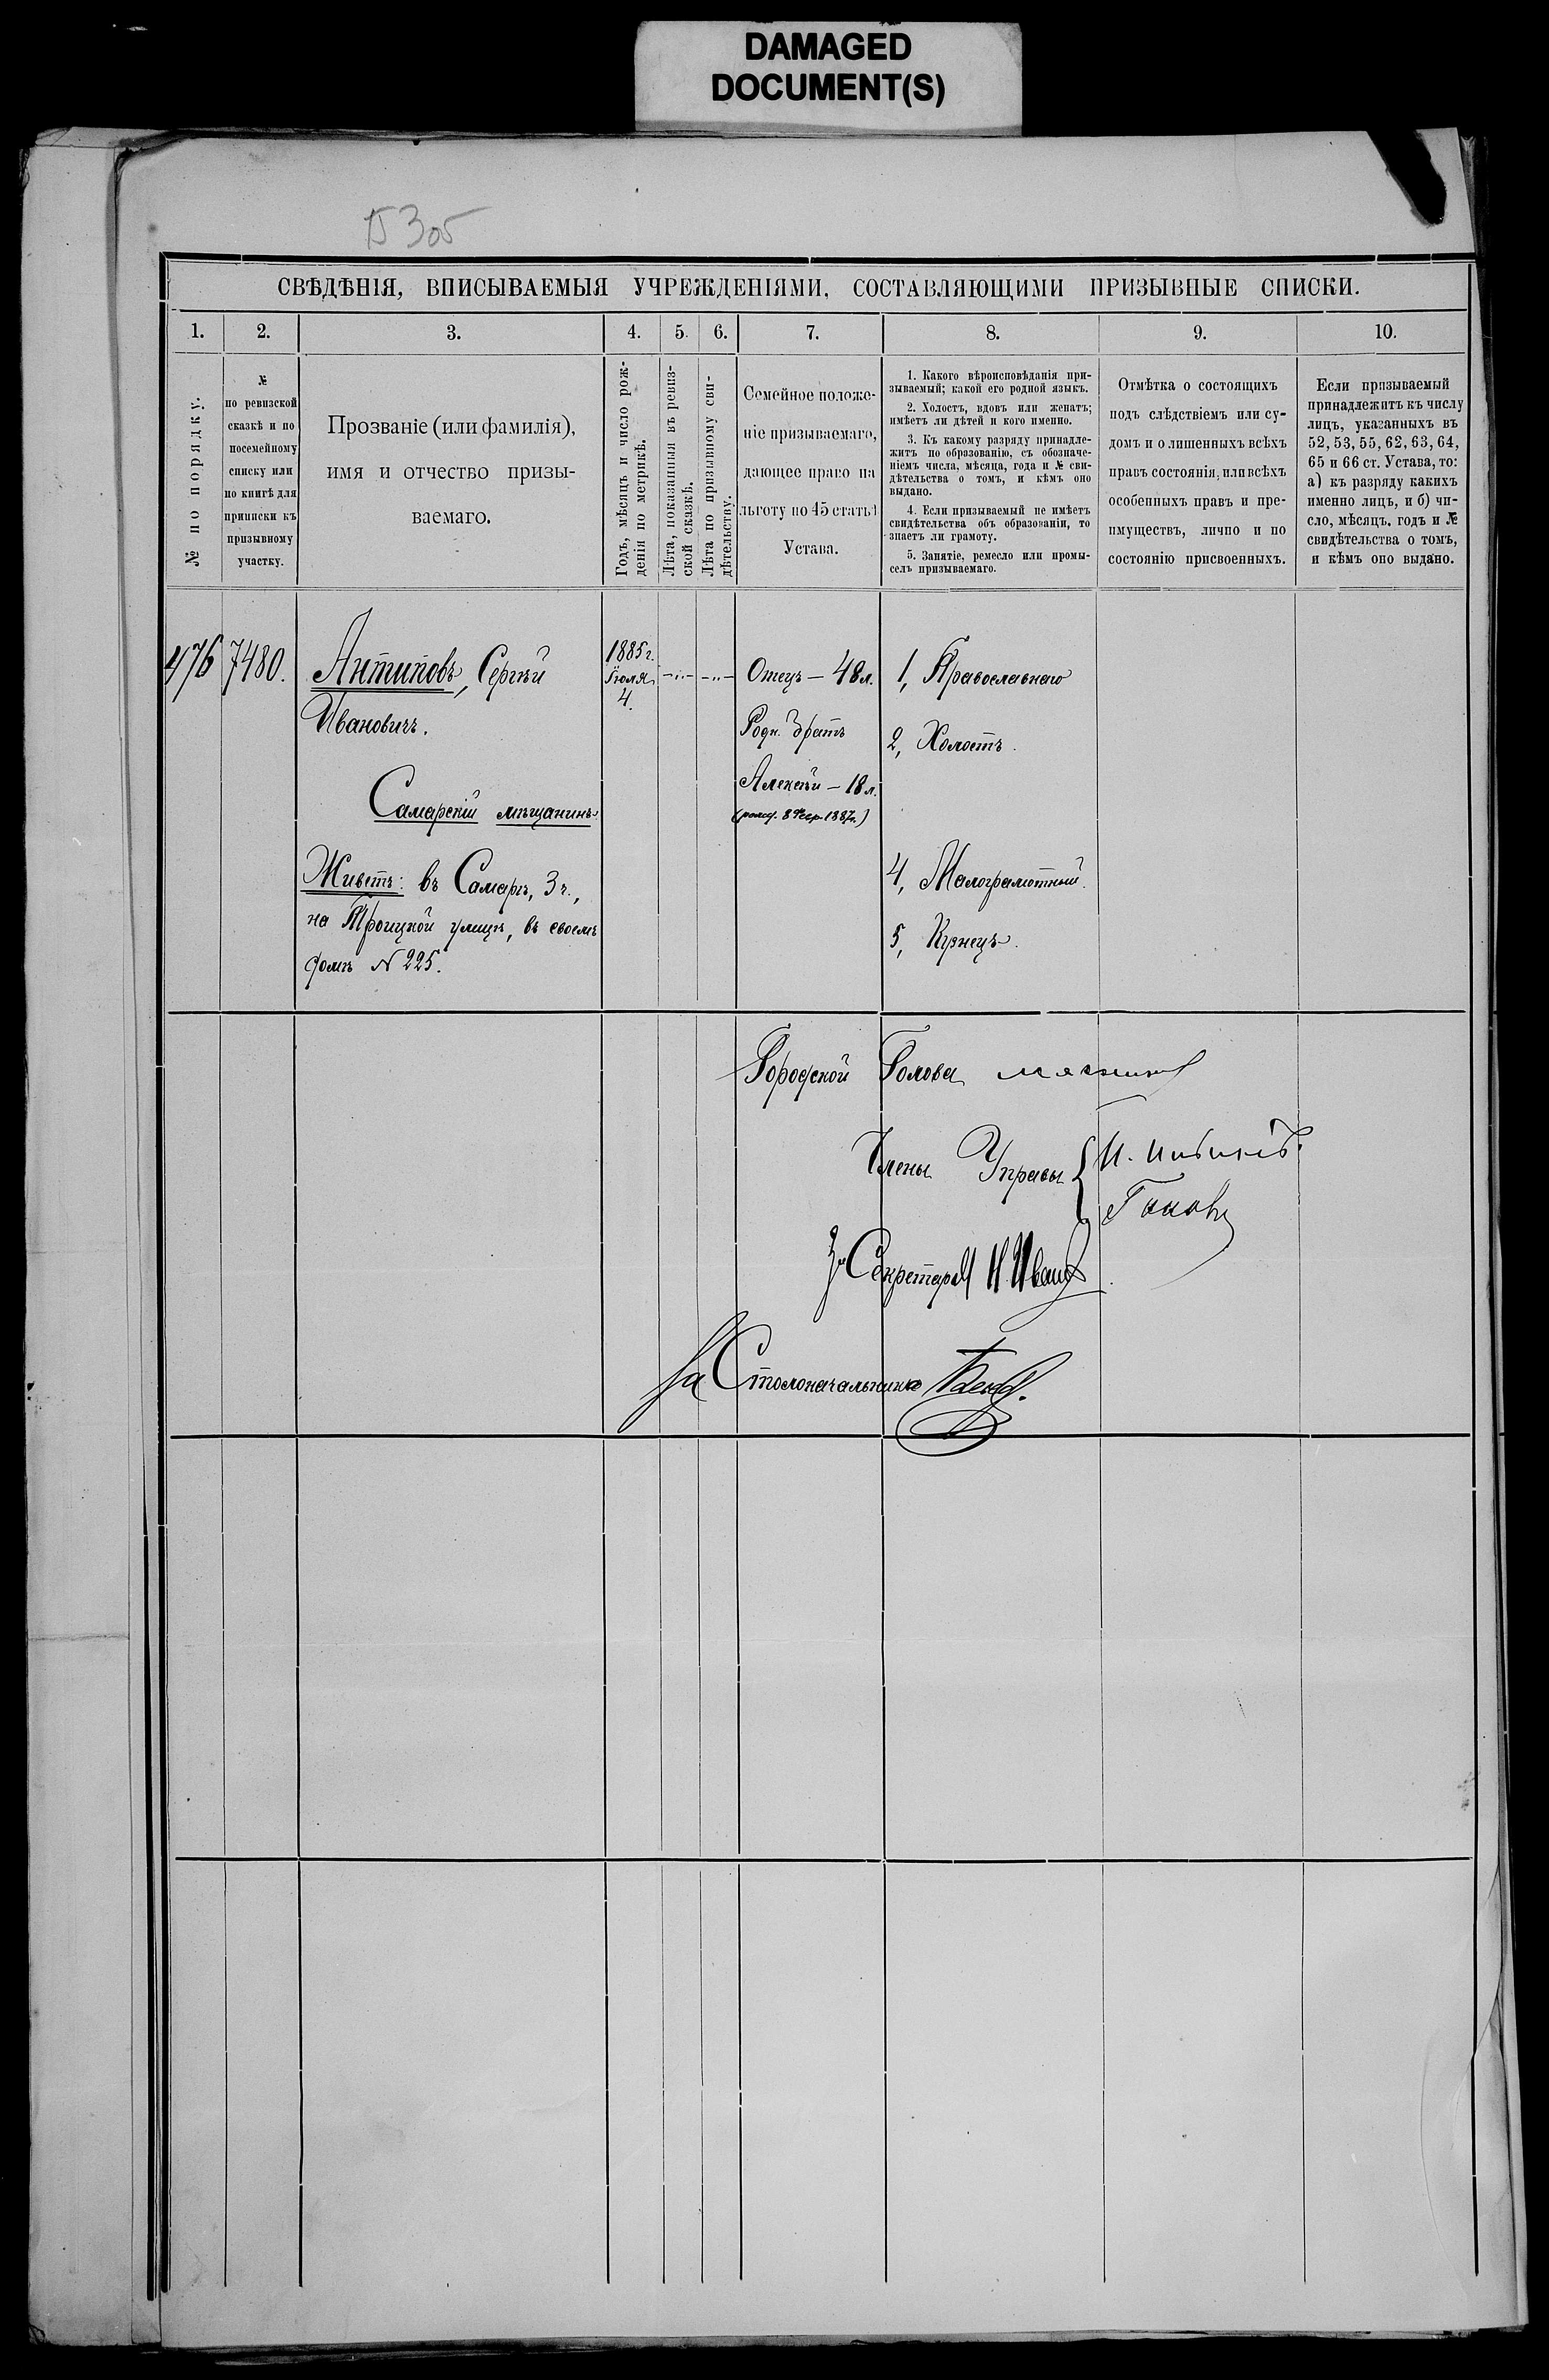 DAMAGED
DOCUMENT(S)
305
СВѢДѢНІЯ, ВПИСЫВАЕМЫЯ УЧРЕЖДЕНІЯМИ, СОСТАВЛЯЮЩИМИ ПРИЗЫВНЫЕ СПИСКИ.
1. 2. 3. 4. 5. 6. 7. 8. 9. 10.
№ по порядку.
№
по ревизской
сказкѣ и по
посемейному
списку или
по книгѣ для
приписки къ
призывному
участку.
Прозваніе (или фамилія),
имя и отчество призы-
ваемаго.
Годъ, мѣсяцъ и число рож-
денія по метрикѣ.
Лѣта, показанныя въ ревиз-
ской сказкѣ.
Лѣта по призывному сви-
дѣтельству.
Семейное положе-
ніе призываемаго,
дающее право на
льготу по 45 статьѣ
Устава.
1. Какого вѣроисповѣданія при-
зываемый; какой его родной языкъ.
2. Холостъ, вдовъ или женатъ;
имѣетъ ли дѣтей и кого именно.
3. Къ какому разряду принадле-
житъ по образованію, съ обозначе-
ніемъ числа, мѣсяца, года и № сви-
дѣтельства о томъ, и кѣмъ оно
выдано.
4. Если призываемый не имѣетъ
свидѣтельства объ образованіи, то
знаетъ ли грамоту.
5. Занятіе, ремесло или промы-
селъ призываемаго.
Отмѣтка о состоящихъ
подъ слѣдствіемъ или су-
домъ и о лишенныхъ всѣхъ
правъ состоянія, или всѣхъ
особенныхъ правъ и пре-
имуществъ, лично и по
состоянію присвоенныхъ.
Если призываемый
принадлежитъ къ числу
лицъ, указанныхъ въ
52, 53, 55, 62, 63, 64,
65 и 66 ст. Устава, то:
а) къ разряду какихъ
именно лицъ, и б) чи-
сло, мѣсяцъ, годъ и №
свидѣтельства о томъ,
и кѣмъ оно выдано.
476
7480.
Антиповъ, Сергѣй
Ивановичъ.
Самарскій мѣщанинъ.
Живетъ: въ Самарѣ, 3 ч.,
на Троицкой улицѣ, въ своемъ
домѣ № 225.
1885 г.
Іюля
4.
Отецъ – 48 л.
Родн. братъ
Алексѣй – 18 л.
(рожд. 8 Февр. 1887 г.)
1, Православнаго
2, Холостъ.
4, Малограмотный.
5, Кузнецъ.
Городской Голова
Члены Управы
За Секретаря Н. Ивановъ
За Столоначальника